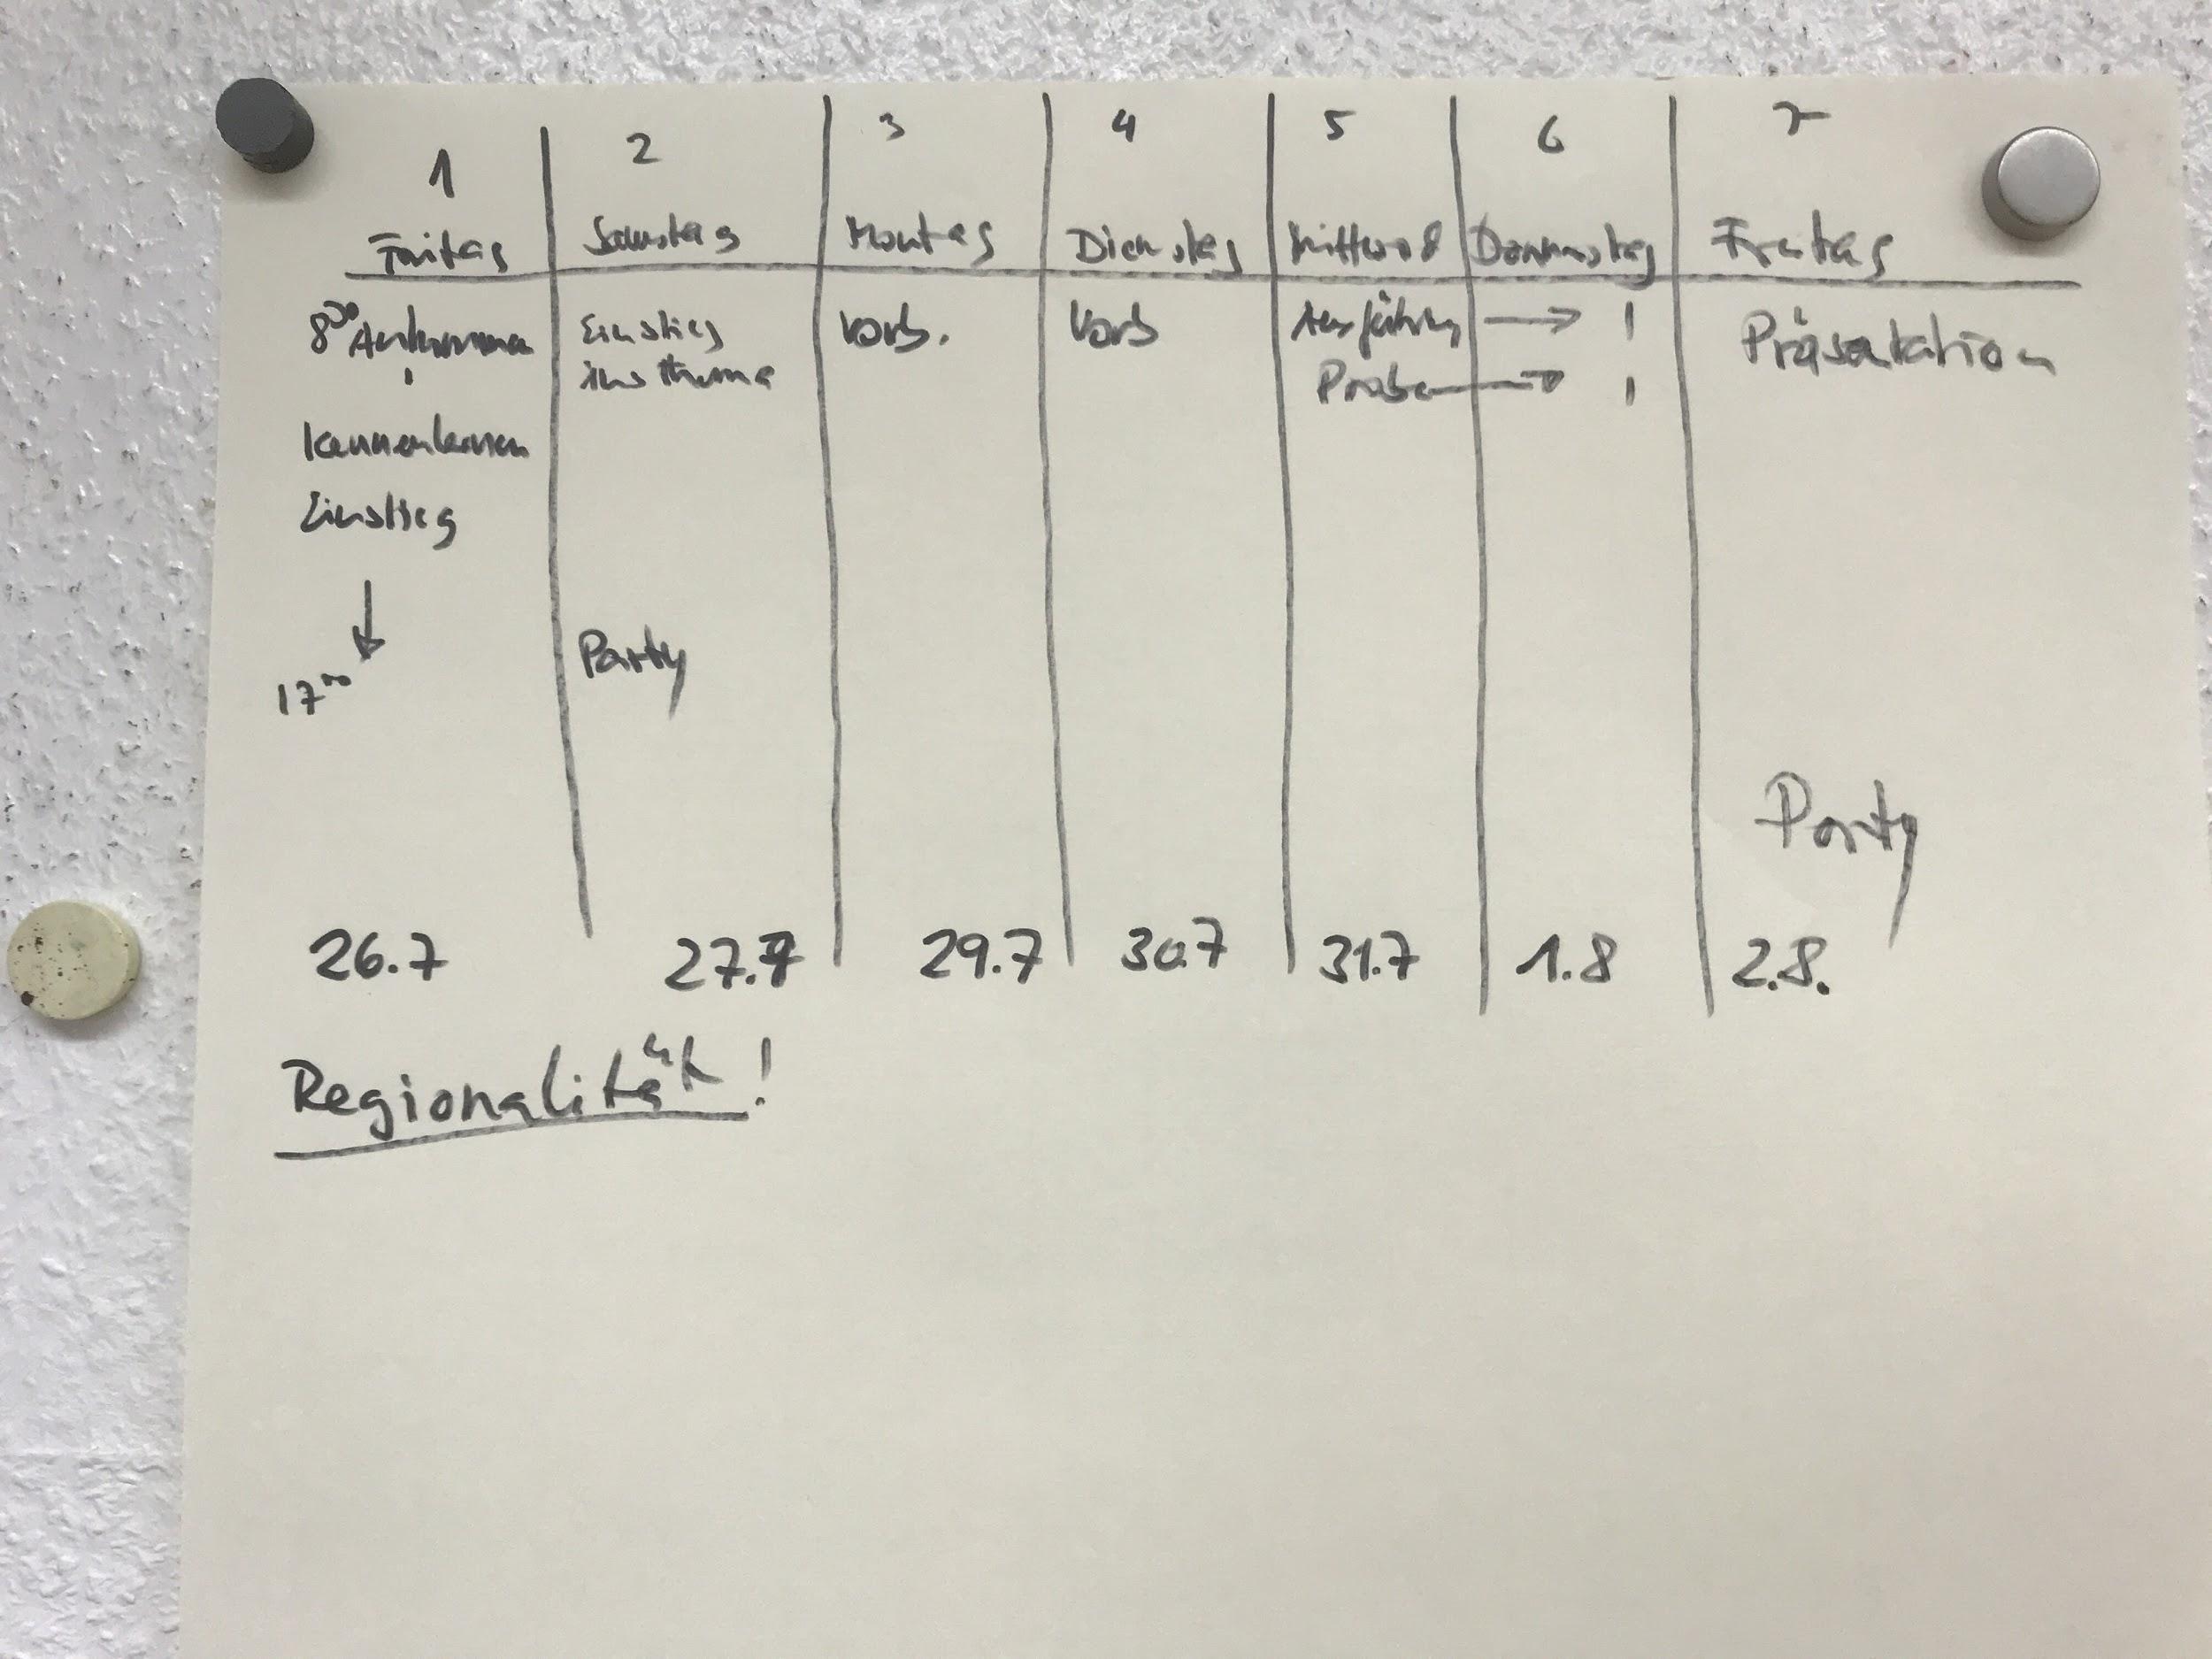 1 2 3 4 5 6 7
Freitag Samstag Montag Dienstag Mittwoch Donnerstag Freitag
8³⁰ Ankommen
Kennenlernen
Einstieg
17⁰⁰
Einstieg
ins Thema
Party
Vorb.
Vorb
Ausführung → !
Probe → !
Präsentation
Party
26.7 27.7 29.7 30.7 31.7 1.8 2.8.
Regionalität!